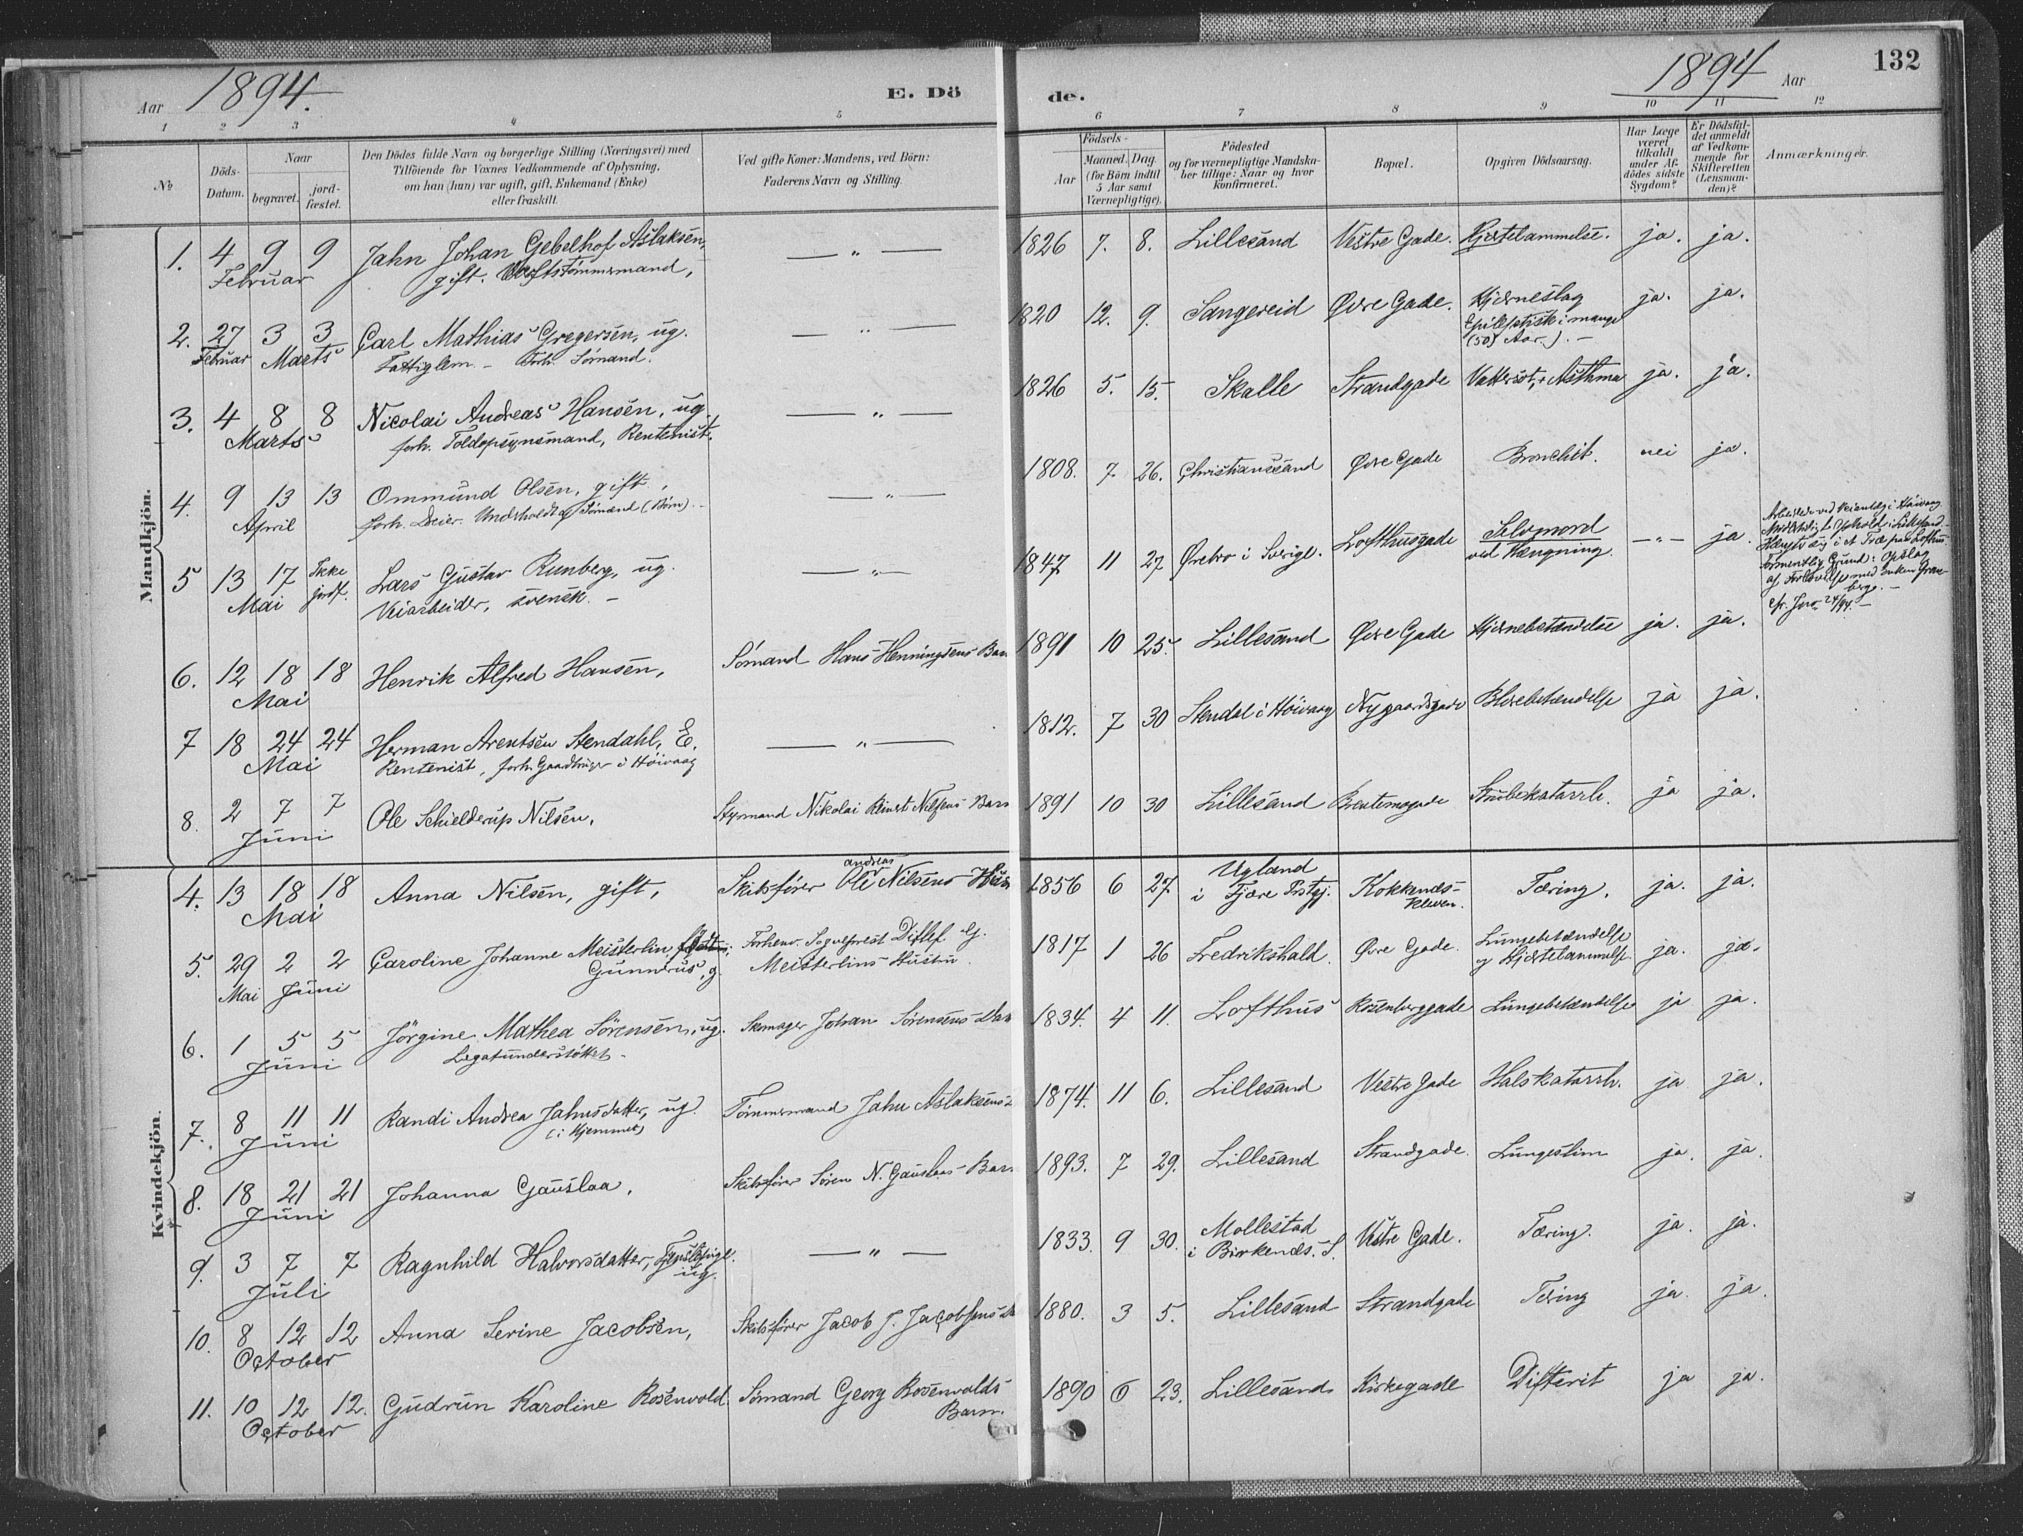 Aar 1894.
E. Dö
de.
1894 Aar
132
1 2 3 4 5 6 7 8 9 10 11 12
№
Döds-Datum.
Naar
begravet.
jord-fæstet.
Den Dödes fulde Navn og borgerlige Stilling (Næringsvei) med
Tilföiende for Voxnes Vedkommende af Oplysning,
om han (hun) var ugift, gift, Enkemand (Enke)
eller fraskilt.
Ved gifte Koner: Mandens, ved Börn:
Faderens Navn og Stilling.
Födsels-
Aar
Maaned. Dag.
(for Börn indtil
5 Aar samt
Værnepligtige).
Födested
og for værnepligtige Mandska-
ber tillige: Naar og hvor
konfirmeret.
Bopæl.
Opgiven Dödsaarsag.
Har Læge
været
tilkaldt
under Af-
dödes sidste
Sygdom?
Er Dödsfal-
det anmeldt
af Vedkom-
mende for
Skifteretten
(Lensman-
den)?
Anmærkninger.
Mandkjön.
1. 4 9 9 Jahn Johan Gebelhof Aslaksen, — " — 1826 7. 8. Lillesand Vestre Gade. Hjertelammelse. ja. ja.
Februar gift. Værftstømmermand,
2. 27 3 3 Carl Mathias Gregersen, ug. — " — 1820 12. 9. Sangereid Øvre Gade. Hjerneslag ja. ja.
Februar Marts Fattiglem. – Forh. Sømand. Epileptisk i mange
(50) Aar.). –
3. 4 8 8 Nicolai Andreas Hansen, ug. — " — 1826 5. 15. Skalle Strandgade Vattersot, + Asthma ja. ja.
Marts forh. Toldopsynsmand, Rentenist.
4. 9 13 13 Ommund Olsen, gift, — " — 1808. 7 26. Christianssand Øvre Gade Bronchit. nei ja.
April forh. Leier. Underholdt af Sømænd (Børn).
5 13 17 Ikke jordf. Lars Gustav Runberg, ug. — " — 1847 11 27 Ørebro i Sverige. Lofthusgade Selvmord — " — ja.
Mai Veiarbeider, svensk. – ved Hængning.
Arbeidede ved Veianlæg i Höivaag
Midlertidig Ophold i Lillesand.
Hængte sig i et Træ paa Lofthus
formentlig Grund: Opslag
af Forlovelse med Enken Gran-
berg. –
6. 12 18 18 Henrik Alfred Hansen, Sømand Hans Henningsens Barn 1891 10 25. Lillesand Øvre Gade Hjernebetændelse ja. ja.
Mai
7 18 24 24 Herman Arentsen Stendahl, E. — " — 1812. 7 30 Stendal i Höivaag Nygaardsgade Blærebetændelse ja ja.
Mai Rentenist, forh. Gaardbruger i Höivaag
8. 2 7 7 Ole Schielderup Nilsen, Styrmand Nikolai Reinert Nilsens Barn 1891 10 30 Lillesand Brentemogade Strubekatarrh. ja ja.
Juni
Kvindekjön.
4. 13 18 18 Anna Nilsen, gift, Skibsfører Ole Andreas Nilsens Hustr 1856 6 27. Ugland i Fjære Prstgj. Kokkenes-kleven. Tæring. ja. ja.
Mai
5. 29 2 2 Caroline Johanne Meisterlin, født Forhenv. Sogneprest Ditlef G. 1817 1 26 Fredrikshald. Øvre Gade. Lungebetændelse ja. ja.
Mai Juni Gunnerus, g. Meisterlins Hustru. og Hjertelammelse
6. 1 5 5 Jörgine Mathea Sörensen, ug. Skomager Johan Sørensens 1834. 4 11. Lofthus Rosenberggade Lungebetændelse ja ja.
Juni Legatunderstøttet.
7. 8 11 11 Randi Andrea Jahnsdatter, ug. Tømmermand Jahn Aslaksens 1874. 11 6. Lillesand Vestre Gade Halskatarrh. ja ja.
Juni (i Hjemmet)
8. 18 21 21 Johanna Gauslaa, Skibsfører Sören N. Gauslaas Barn 1893. 7 29. Lillesand Strandgade. Lungeslim ja. ja.
Juni
9. 3 7 7 Ragnhild Halvorsdatter, — " — 1833. 9 30. Mollestad i Birkenes. S. Vestre Gade. Tæring. ja. ja.
Juli ug.
10. 8 12 12 Anna Serine Jacobsen, Skibsfører Jacob J. Jacobsens 1880. 3 5. Lillesand Strandgade Tæring ja. ja.
October
11. 10 12 12. Gudrun Karoline Rosenvold. Sømand Georg Rosenvolds 1890 6 23. Lillesand Kirkegade Difterit ja ja.
October Barn.